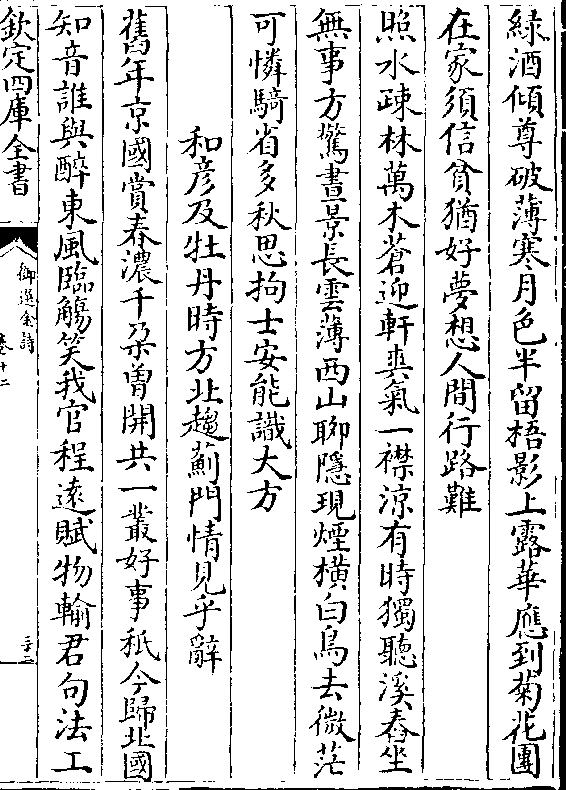 綠酒傾尊破薄寒月色半留梧影上露華應到菊花團
在家須信貧猶好夢想人間行路難
照水疎林萬木蒼迎軒爽氣一襟涼有時獨聽溪舂坐
無事方驚晝景長雲薄西山聊隱現煙横白鳥去微茫
可憐騎省多秋思拘士安能識大方
和彦及牡丹時方北趨薊門情見乎辭
舊年京國賞春濃千朶曽開共一叢好事秖今歸北國
知音誰與醉東風臨觴笑我官程遠賦物輸君句法工
欽定四庫全書
御選金詩
卷十二